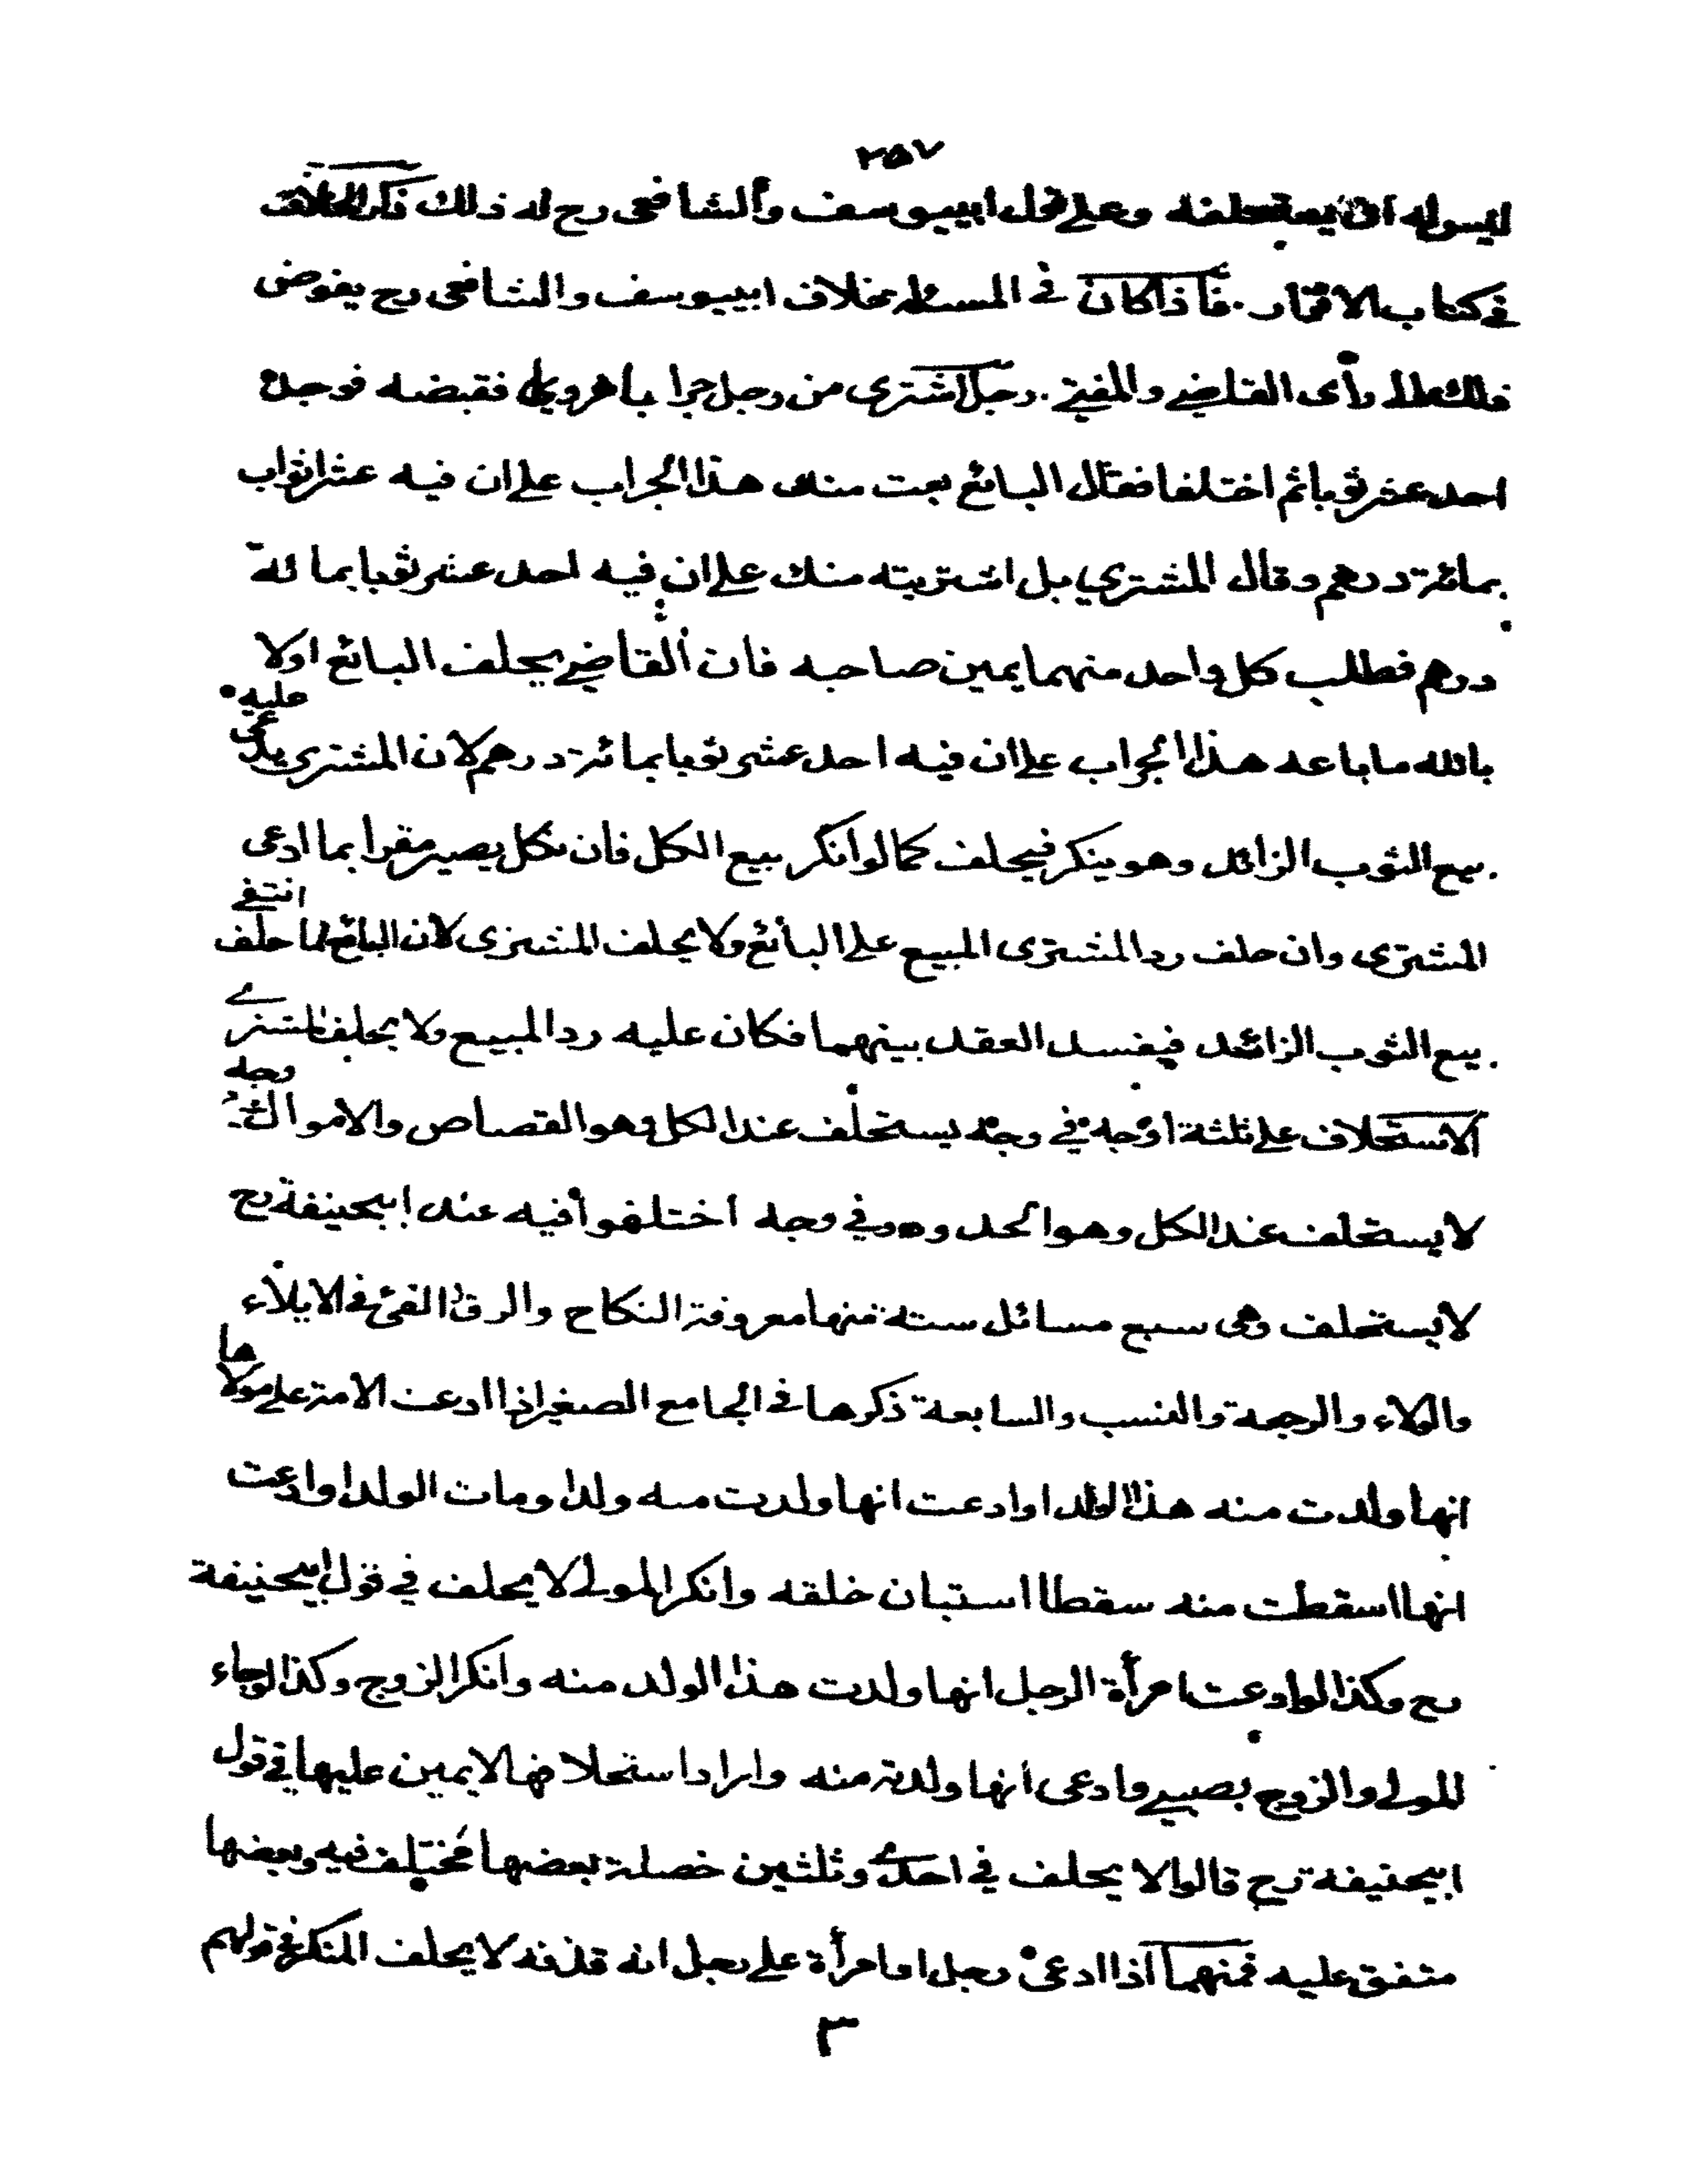 ٢٥٧
ليس له ان يستحلفه وعلى قول ابييوسف والشافعى رح له ذلك ذكر الخلاف
فى كتاب الاقرار . فاذا كان فى المسئله خلاف ابييوسف والشافعى رح يفوض
ذلك الى رأى القاضي والمفتي . رجل اشترى من رجل جرابا هروي فقبضه فوجد
احد عشر ثوبا ثم اختلفا فقال البائع بعت منك هذا الجراب على ان فيه عشر اثواب
بمائة درهم وقال المشتري بل اشتريته منك على ان فيه احد عشر ثوبا بمائة
درهم فطلب كل واحد منهما يمين صاحبه فان القاضي يحلف البائع اولا
بالله ما باعه هذا الجراب على ان فيه احد عشر ثوبا بمائة درهم لان المشترى يدعى عليه
بيع الثوب الزائد وهو ينكر فيحلف كما لو انكر بيع الكل فان نكل يصير مقرا بما ادعى
المشترى وان حلف رد المشترى المبيع على البائع ولا يحلف المشترى لان البائع لما حلف انتفى
بيع الثوب الزائد فيفسد العقد بينهما فكان عليه رد المبيع ولا يحلف المشترے
الاستحلاف على ثلثة اوجه في وجه يستحلف عند الكل وهو القصاص والاموال وفي وجه
لا يستحلف عند الكل وهو الحدود وفي وجه اختلفوا فيه عند ابيحنيفة رح
لا يستحلف وهى سبع مسائل ستة منها معروفة النكاح والرق والفئ فى الايلاء
والولاء والرجعة والنسب والسابعة ذكرها فى الجامع الصغير اذا ادعت الامة على مولاها
انها ولدت منه هذا الولد او ادعت انها ولدت منه ولدا ومات الولد او ادعت
انها اسقطت منه سقطا استبان خلقه وانكر المولى لا يحلف في قول ابيحنيفة
رح وكذا لو ادعت امرأة الرجل انها ولدت هذا الولد منه وانكر الزوج وكذا لو جاء
المولى والزوج بصبي وادعى انها ولدته منه وارادا ستحلافها لا يمين عليها في قول
ابيحنيفة رح قالوا لا يحلف في احدے وثلثين خصلة بعضها مختلف فيه وبعضها
متفق عليه فمنهما اذا ادعى رجل او امرأة على رجل انه قذفه لا يحلف المنكر فى قولهم
٣